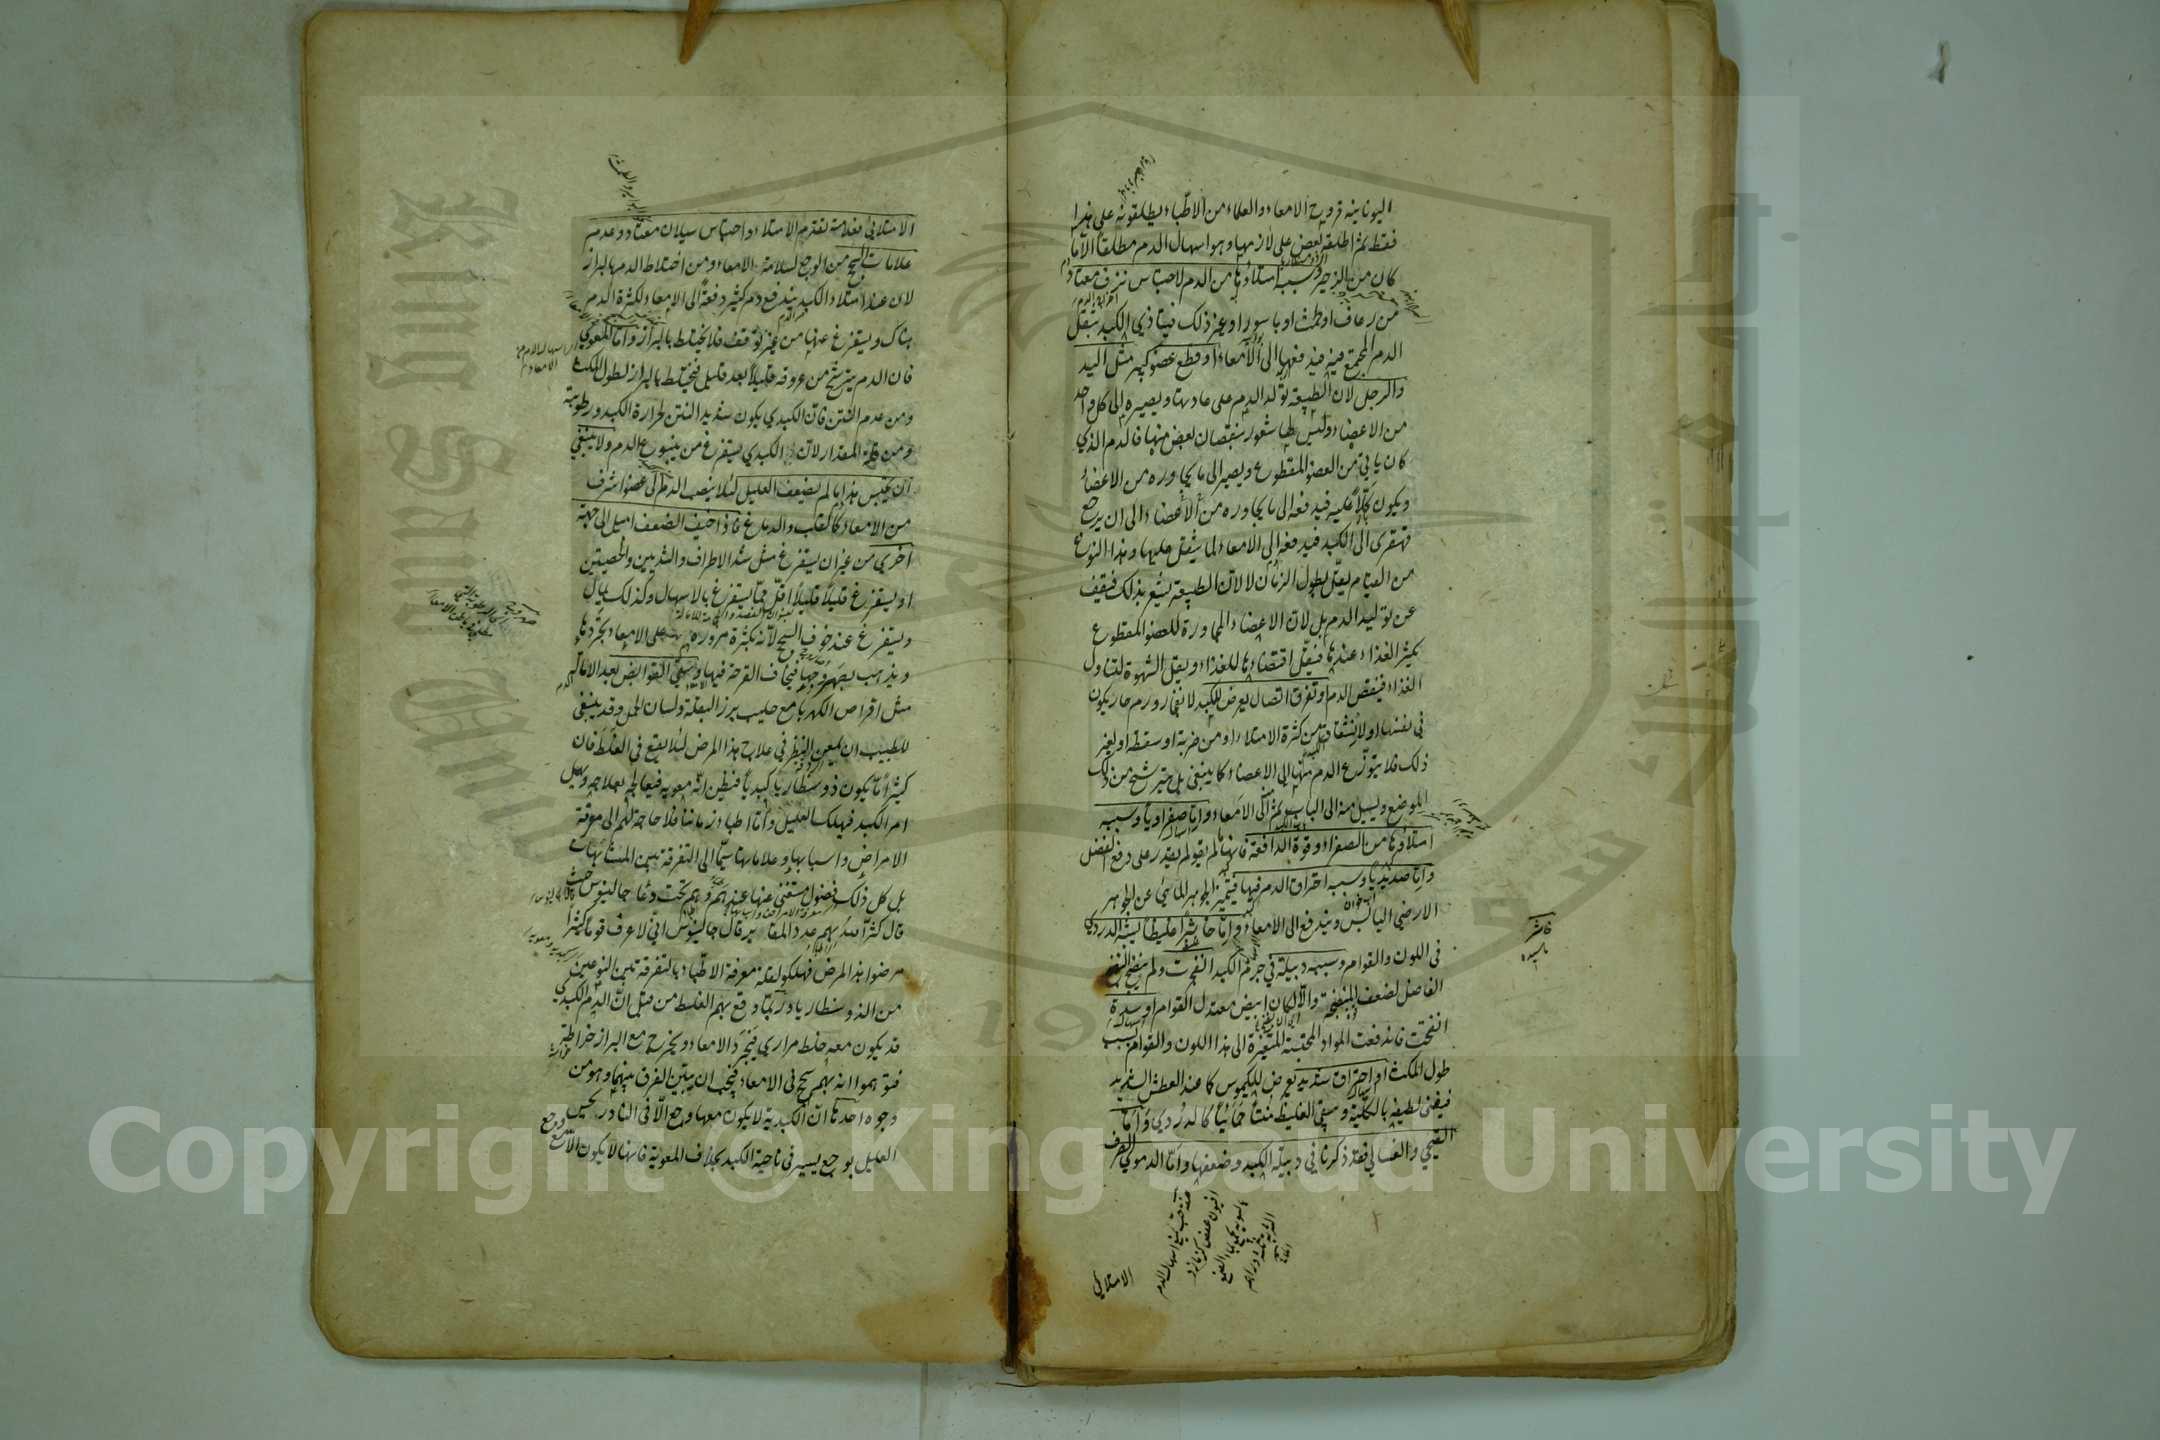 اليونانية قروح الامعاء والعلماء من الاطباء يطلقونه على هذا
فقط ثم اطلقه بعض على لازمها وهو اسهال الدم مطلقا الا ما
كان من الزحير وسببه امتلاؤها من الدم لاحتباس نزف معتاد
من رعاف او طمث او باسور او غير ذلك فيتاذى الكبد بثقل
الدم المجتمع فيه فيدفعها الى الامعاء او قطع عضو كبير مثل اليد
والرجل لان الطبيعة تولد الدم على عادتها ويصيره الى كل واحد
من الاعضاء وليس لها شعور بنقصان بعض منها فالدم الذي
كان ياتي من العضو المقطوع ويصير الى ما يجاوره من الاعضاء
ويكون كلا عليه فيدفعه الى ما يجاوره من الاعضاء الى ان يرجع
قهقرى الى الكبد فيدفعه الى الامعاء لما يثقل عليها وهذا النوع
من القيام يقل بطول الزمان لا لان الطبيعة تشعر بذلك فيقف
عن توليد الدم بل لان الاعضاء المجاورة للعضو المقطوع
يكثر الغذاء عندها فيقل اقتضاءها للغذاء ويقل الشهوة لتناول
الغذاء فينقص الدم او تفرق اتصال يعرض للكبد لانفجار ورم حار يكون
في نفسها او لانشقاق من كثرة الامتلاء او من ضربة او سقطة او لغير
ذلك فلا يتوزع الدم منها الى الاعضاء كما ينبغي بل يترشح من ذلك
الموضع ويسيل منه الى الباب ثم الى الامعاء واما صفراويا وسببه
امتلاؤها من الصفراء وقوة الدافعة فانها ما لم يقو لم يقدر على دفع الفضل
واما صديديا وسببه احتراق الدم فيها فيتميز الجوهر المائي عن الجوهر
الارضي اليابس ويندفع الى الامعاء واما خاثرا غليظا يشبه الدردي
في اللون والقوام وسببه دبيلة في جرم الكبد انفجرت ولم ينضج النضج
الفاضل لضعف المنضجة والا لكان ابيض معتدل القوام او سدة
انفتحت فاندفعت المواد المحتبسة المتغيرة الى هذا اللون والقوام بسبب
طول المكث او احتراق شديد يعرض للكيموس كما عند العطش الشديد
فيفنى لطيفه بالكلية ويبقى الغليظ منتنا حمائيا كالدردي واما
القيحي والغسالي فقد ذكرنا في دبيلة الكبد وضعفها واما الدموي الصرف
الامتلائي
الامتلائي فعلامته تقدم الامتلاء واحتباس سيلان معتاد وعدم
علامات السحج من الوجع لسلامة الامعاء ومن اختلاط الدم بالبراز
لان عند امتلاء الكبد يندفع دم كثير دفعة الى الامعاء لكثرة الدم
هناك ويستفرغ عنها من غير توقف فلا يختلط بالبراز واما المعوي
فان الدم يترشح من عروقه قليلا بعد قليل فيختلط بالبراز لطول المكث
ومن عدم النتن فان الكبدي يكون شديد النتن لحرارة الكبد ورطوبته
ومن قلة المقدار لان الكبدي يستفرغ من ينبوع الدم ولا ينبغي
ان يحبس هذا ما لم يضعف العليل لئلا ينصب الدم الى عضو اشرف
من الامعاء كالقلب والدماغ فاذا خيف الضعف اميل الى جهة
اخرى من غير ان يستفرغ مثل شد الاطراف والثديين والخصيتين
او يستفرغ قليلا قليلا اقل مما يستفرغ بالاسهال وكذلك يمال
ويستفرغ عند خوف السحج لانه بكثرة مروره على الامعاء يجردها
ويذهب بصهروجها فيخاف القرحة فيها ويسقى القوابض بعد الامالة
مثل اقراص الكهربا مع حليب بزر البقلة ولسان الحمل وقد ينبغي
للطبيب ان يمعن النظر في علاج هذا المرض لئلا يقع في الغلط فان
كثيرا ما يكون ذوسنطاريا كبديا فيظن انه معوية فيعالجه بعلاجه ويهمل
امر الكبد فيهلك العليل واما اطباء زماننا فلا حاجة لهم الى معرفة
الامراض واسبابها وعلاماتها سيما الى التفرقة بين المتشابهات
بل كل ذلك فضول مستغنى عنها عندهم وهم تحت دعاء جالينوس حيث
قال كثر الله بهم عدد المقابر قال جالينوس اني لاعرف قوما كثيرا
مرضوا بهذا المرض فهلكوا لقلة معرفة الاطباء بالتفرقة بين النوعين
من الذوسنطاريا وربما وقع بهم الغلط من قبل ان الدم الكبدي
قد يكون معه خلط مراري فيجرد الامعاء ويخرج مع البراز خراطة
فتوهموا انه بهم سحج في الامعاء فيجب ان يبين الفرق بينهما وهو من
وجوه احدها ان الكبدية لا يكون معها وجع الا في النادر يحس
العليل بوجع يسير في ناحية الكبد بخلاف المعوية فانها لا يكون الا مع وجع
Copyright © King Saud University